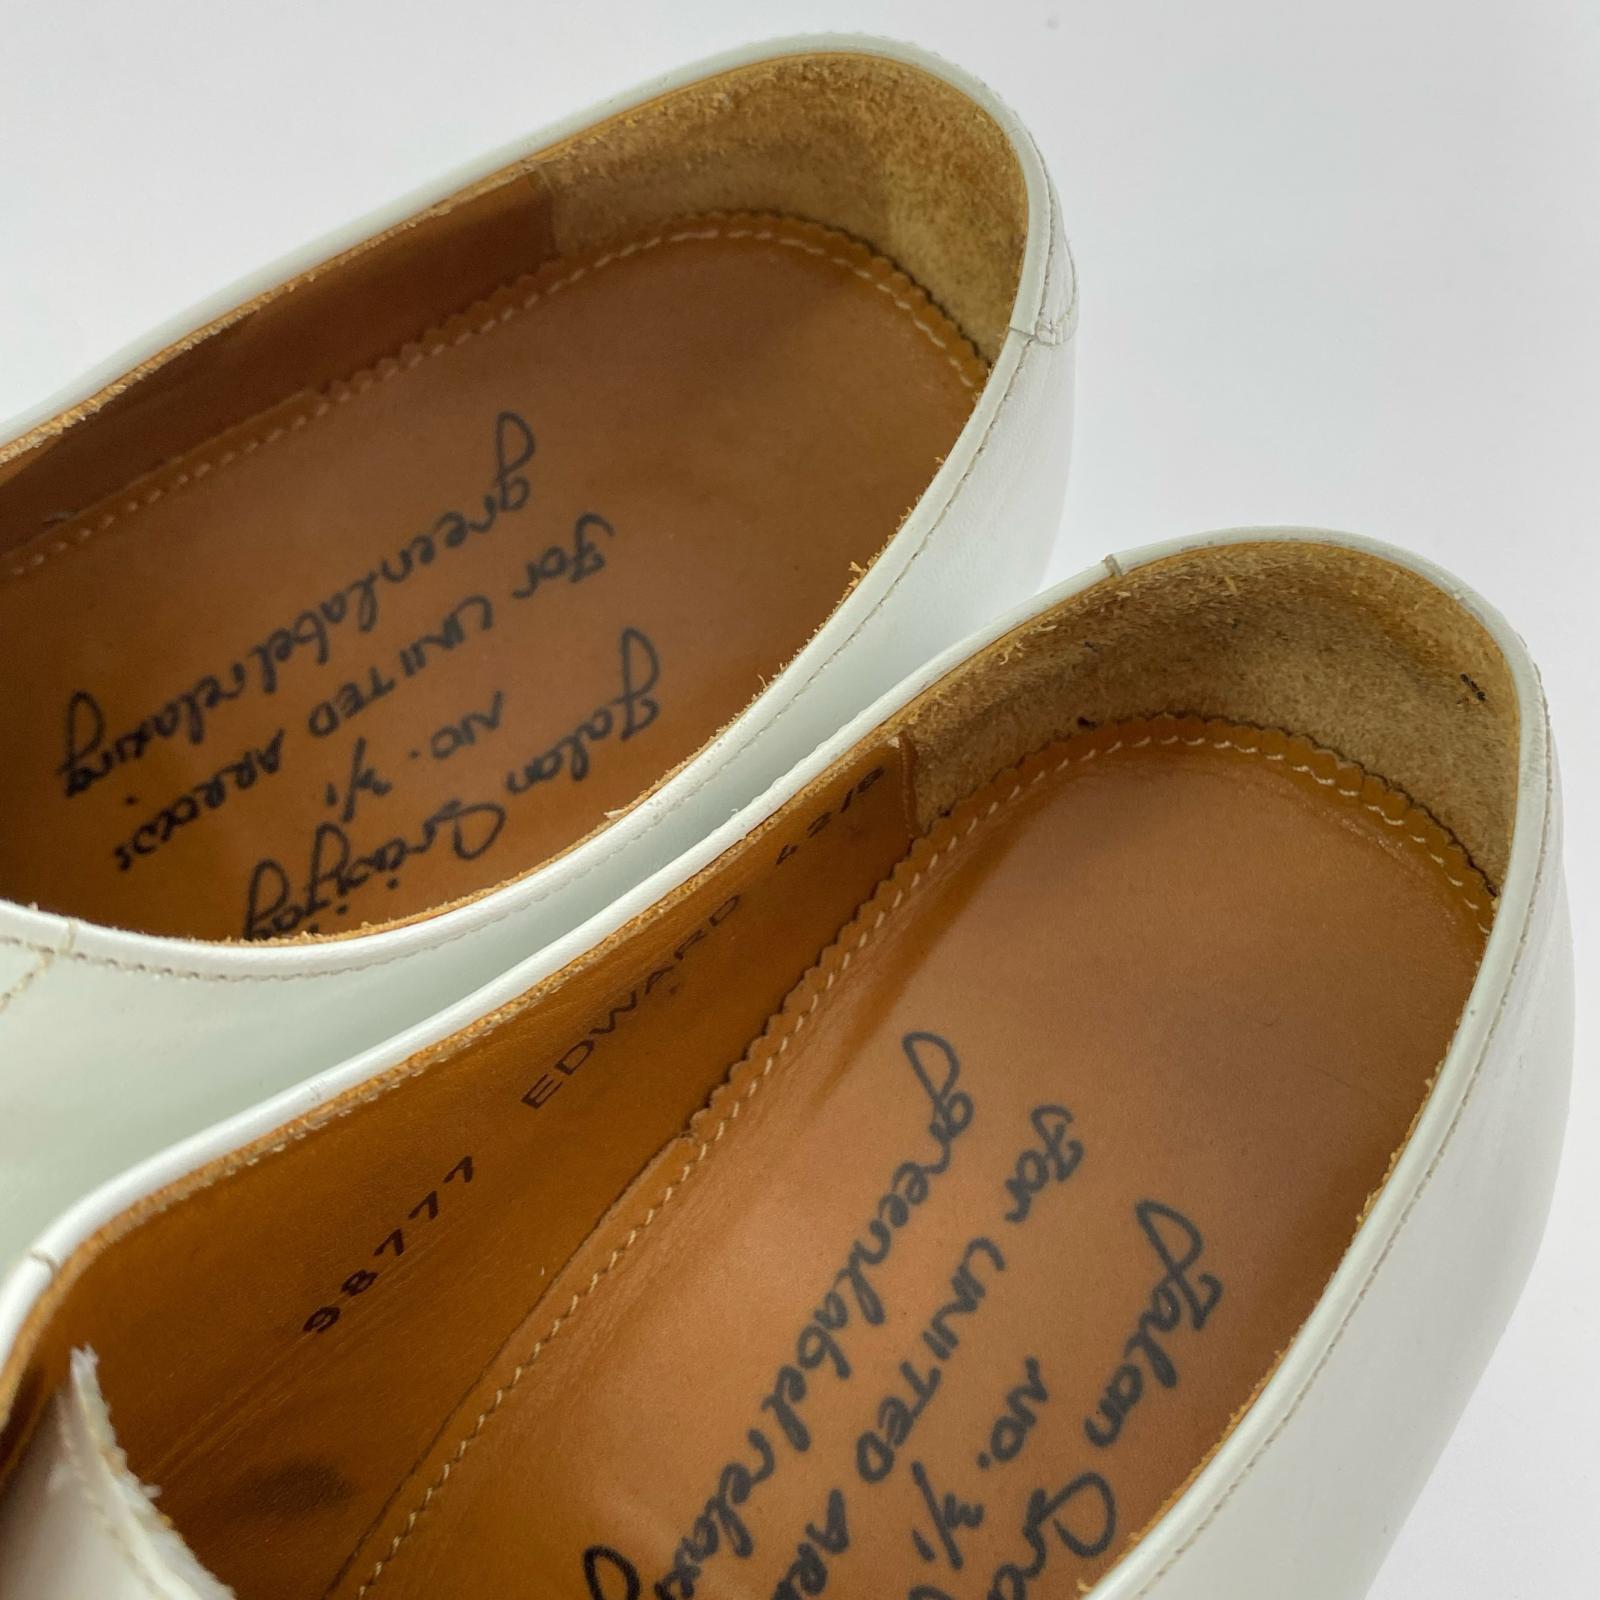 Jalan Sriwijaya
NO. 3/1
For UNITED ARROWS
green label relaxing
98777 EDWARD 42/8
Jalan
NO. 3/1
For UNITED
green label relaxing